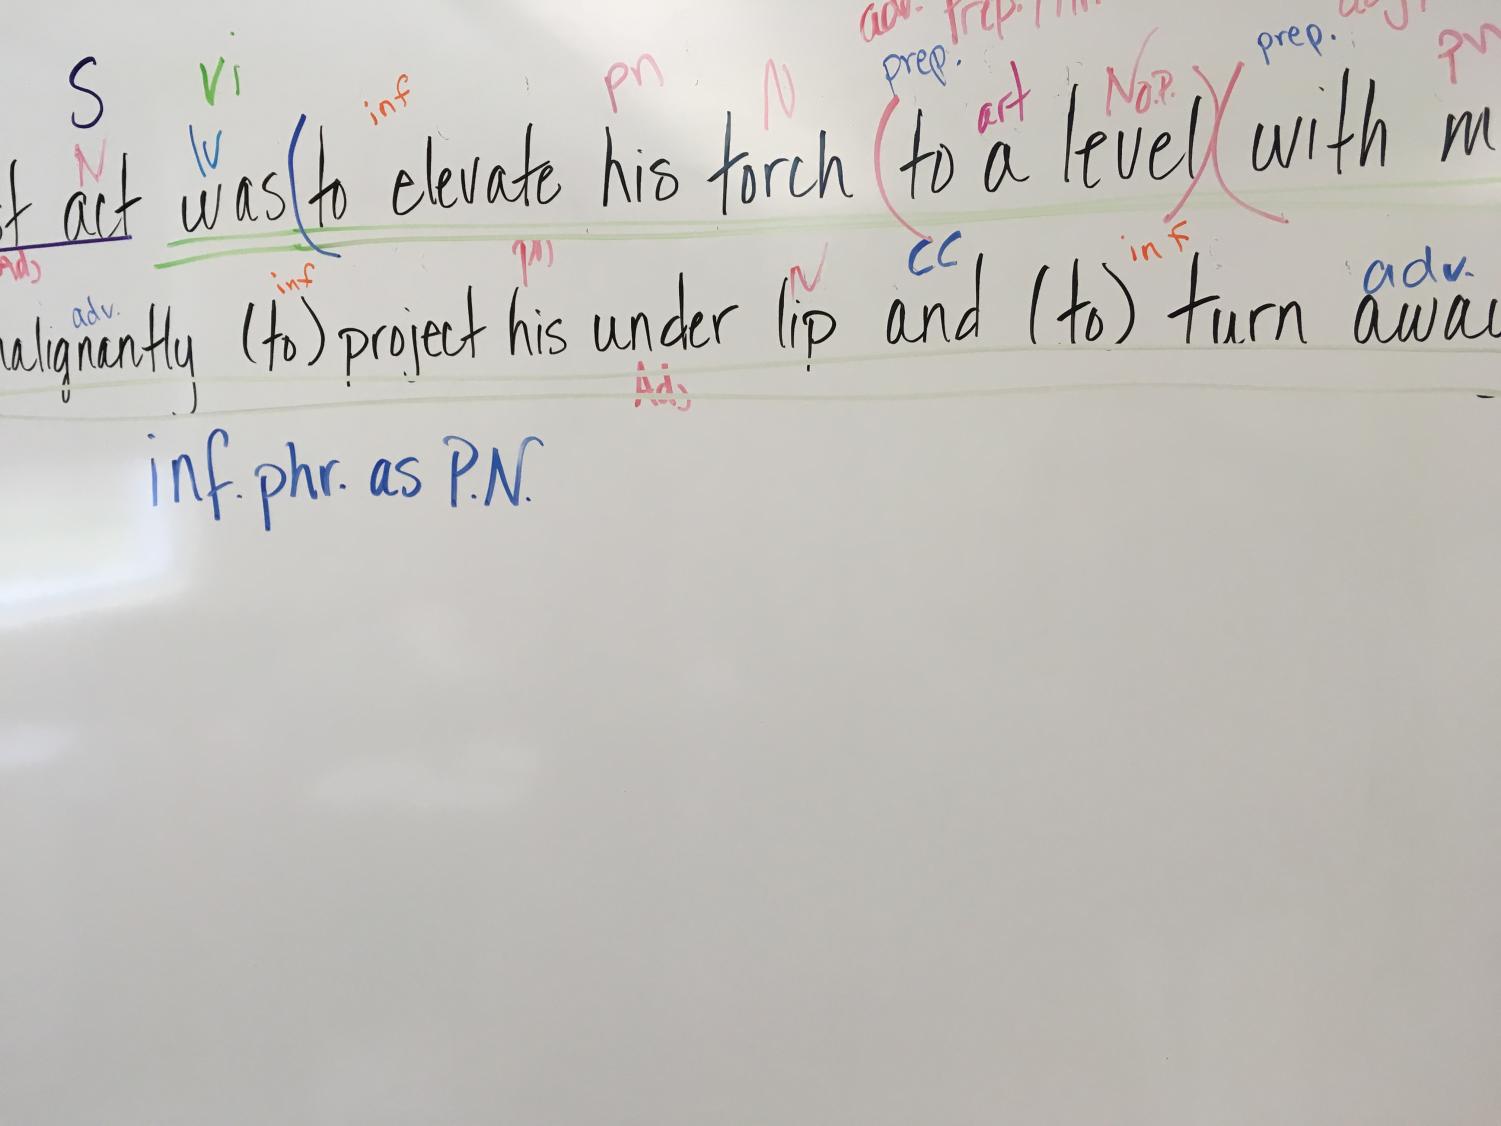 adv. prep.
S vi inf pn N prep. art N O.P. prep.
N lv
act was (to elevate his torch (to a level) (with
Adj inf pn N CC inf adv.
adv.
malignantly (to) project his under lip and (to) turn away
Adj
inf. phr. as P.N.